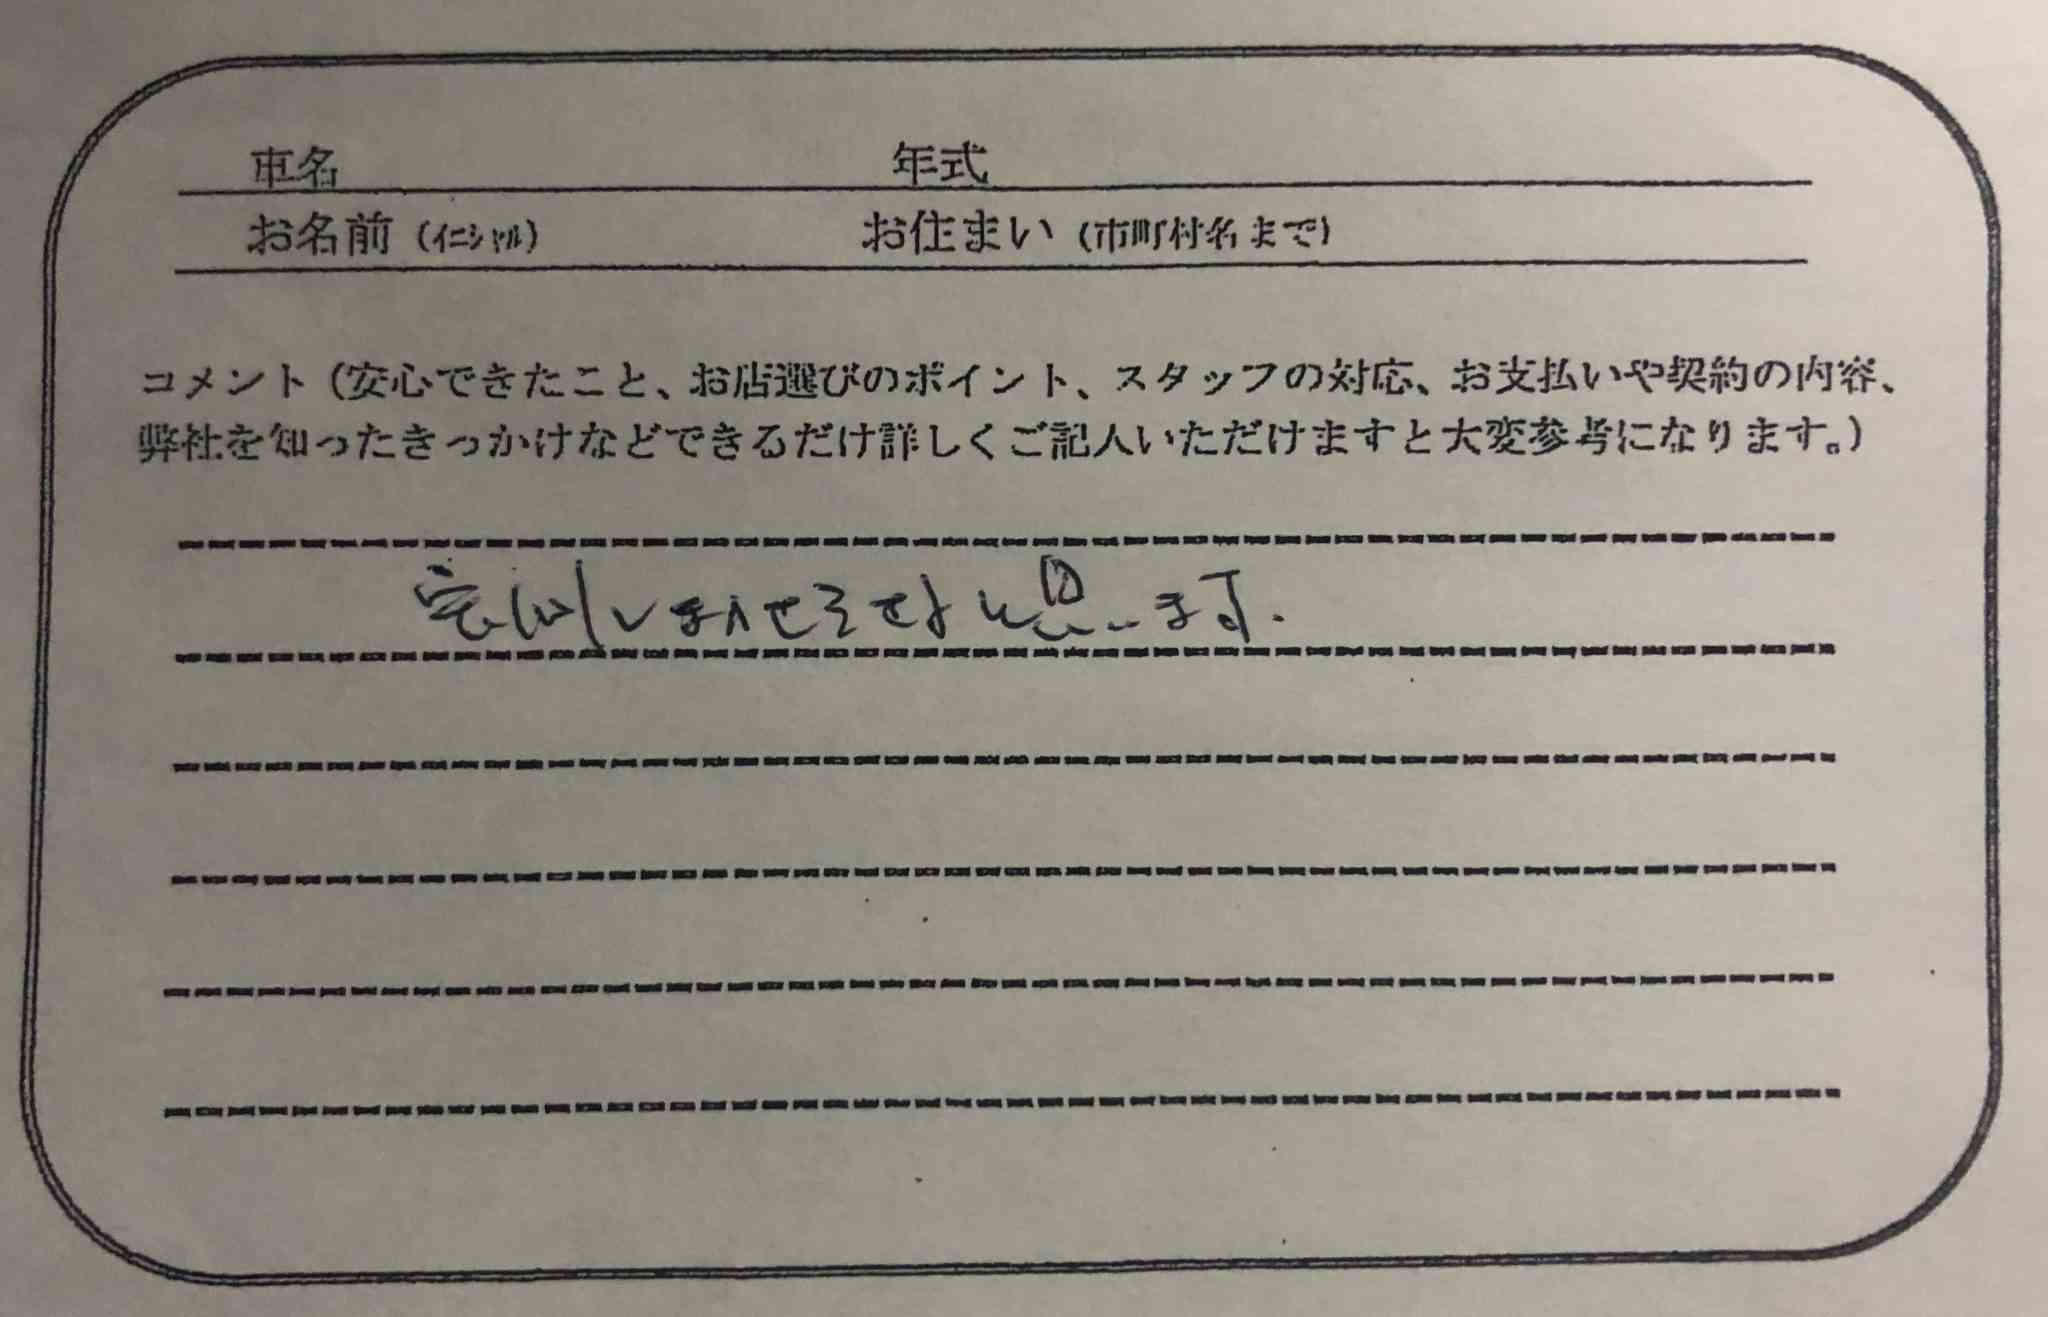 車名 年式
お名前(イニシャル) お住まい(市町村名まで)
コメント(安心できたこと、お店選びのポイント、スタッフの対応、お支払いや契約の内容、
弊社を知ったきっかけなどできるだけ詳しくご記入いただけますと大変参考になります。)
まかせろせると思います.